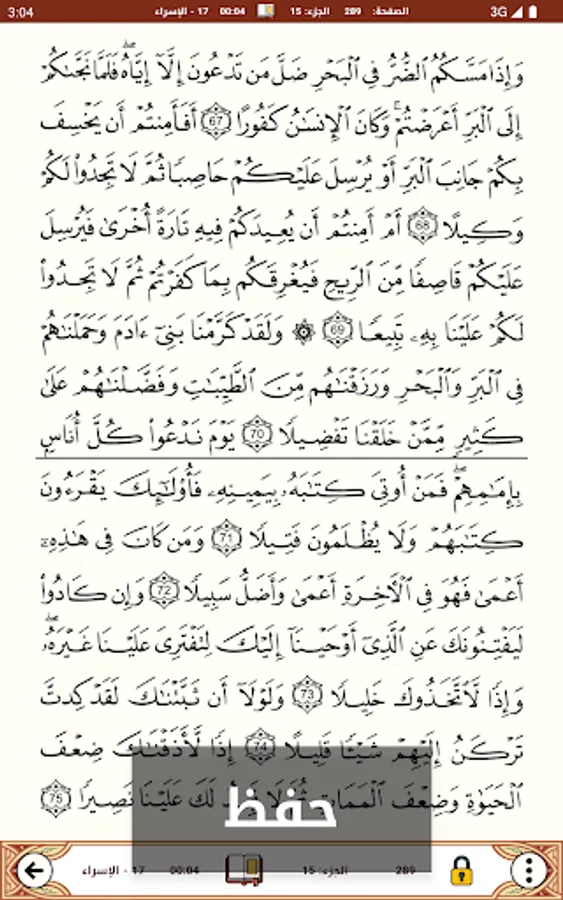 3:04 17 - الإسراء 00:04 الجزء: 15 289 الصفحة: 3G
وَإِذَا مَسَّكُمُ ٱلضُّرُّ فِي ٱلْبَحْرِ ضَلَّ مَن تَدْعُونَ إِلَّآ إِيَّاهُ ۖ فَلَمَّا نَجَّىٰكُمْ
إِلَى ٱلْبَرِّ أَعْرَضْتُمْ ۚ وَكَانَ ٱلْإِنسَٰنُ كَفُورًا 67 أَفَأَمِنتُمْ أَن يَخْسِفَ
بِكُمْ جَانِبَ ٱلْبَرِّ أَوْ يُرْسِلَ عَلَيْكُمْ حَاصِبًا ثُمَّ لَا تَجِدُوا۟ لَكُمْ
وَكِيلًا 68 أَمْ أَمِنتُمْ أَن يُعِيدَكُمْ فِيهِ تَارَةً أُخْرَىٰ فَيُرْسِلَ
عَلَيْكُمْ قَاصِفًا مِّنَ ٱلرِّيحِ فَيُغْرِقَكُم بِمَا كَفَرْتُمْ ثُمَّ لَا تَجِدُوا۟
لَكُمْ عَلَيْنَا بِهِۦ تَبِيعًا 69 ۞ وَلَقَدْ كَرَّمْنَا بَنِيٓ ءَادَمَ وَحَمَلْنَٰهُمْ
فِي ٱلْبَرِّ وَٱلْبَحْرِ وَرَزَقْنَٰهُم مِّنَ ٱلطَّيِّبَٰتِ وَفَضَّلْنَٰهُمْ عَلَىٰ
كَثِيرٍ مِّمَّنْ خَلَقْنَا تَفْضِيلًا 70 يَوْمَ نَدْعُوا۟ كُلَّ أُنَاسٍۭ
بِإِمَٰمِهِمْ ۖ فَمَنْ أُوتِيَ كِتَٰبَهُۥ بِيَمِينِهِۦ فَأُو۟لَٰٓئِكَ يَقْرَءُونَ
كِتَٰبَهُمْ وَلَا يُظْلَمُونَ فَتِيلًا 71 وَمَن كَانَ فِي هَٰذِهِۦٓ
أَعْمَىٰ فَهُوَ فِي ٱلْأَخِرَةِ أَعْمَىٰ وَأَضَلُّ سَبِيلًا 72 وَإِن كَادُوا۟
لَيَفْتِنُونَكَ عَنِ ٱلَّذِيٓ أَوْحَيْنَآ إِلَيْكَ لِتَفْتَرِيَ عَلَيْنَا غَيْرَهُۥ ۖ
وَإِذًا لَّٱتَّخَذُوكَ خَلِيلًا 73 وَلَوْلَآ أَن ثَبَّتْنَٰكَ لَقَدْ كِدتَّ
تَرْكَنُ إِلَيْهِمْ شَيْـًٔا قَلِيلًا 74 إِذًا لَّأَذَقْنَٰكَ ضِعْفَ
ٱلْحَيَوٰةِ وَضِعْفَ ٱلْمَمَاتِ ثُمَّ لَا تَجِدُ لَكَ عَلَيْنَا نَصِيرًا 75
حفظ
17 - الإسراء 00:04 الجزء: 15 289